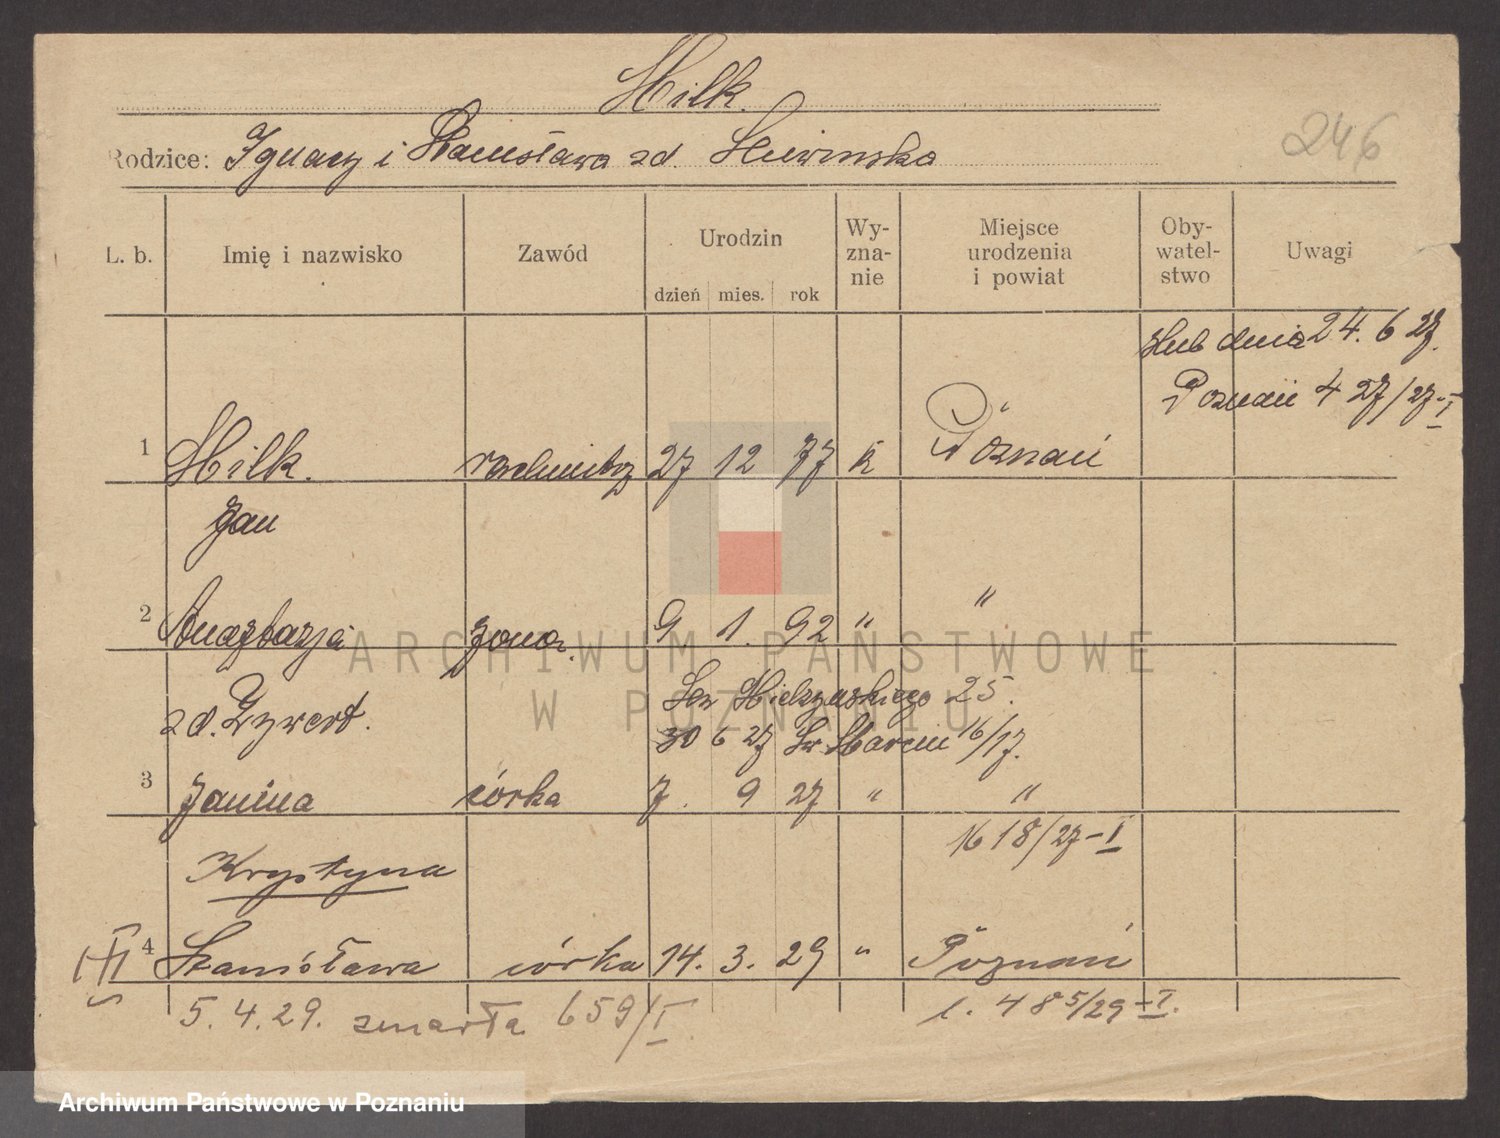 Hilk.
246
Rodzice: Ignacy i Stanisława zd.
L. b. Imię i nazwisko Zawód Urodzin dzień mies. rok Wy-zna-nie Miejsce urodzenia i powiat Oby-watel-stwo Uwagi
ślub dnia 24. 6 27.
Poznań 427/27-I
1 Hilk. 27 12 77 k Poznań
Jan
2 Anastazja żona. 9 1. 92 " "
zd. Zywert. 25.
30 6 27 Św Marcin 16/17.
3 Janina córka 7. 9 27 " "
1618/27-I
Krystyna
4 Stanisława córka 14. 3. 29 " Poznań
5. 4. 29. zmarła 659/I l. 485/29-I.
ARCHIWUM PAŃSTWOWE
W POZNANIU
Archiwum Państwowe w Poznaniu